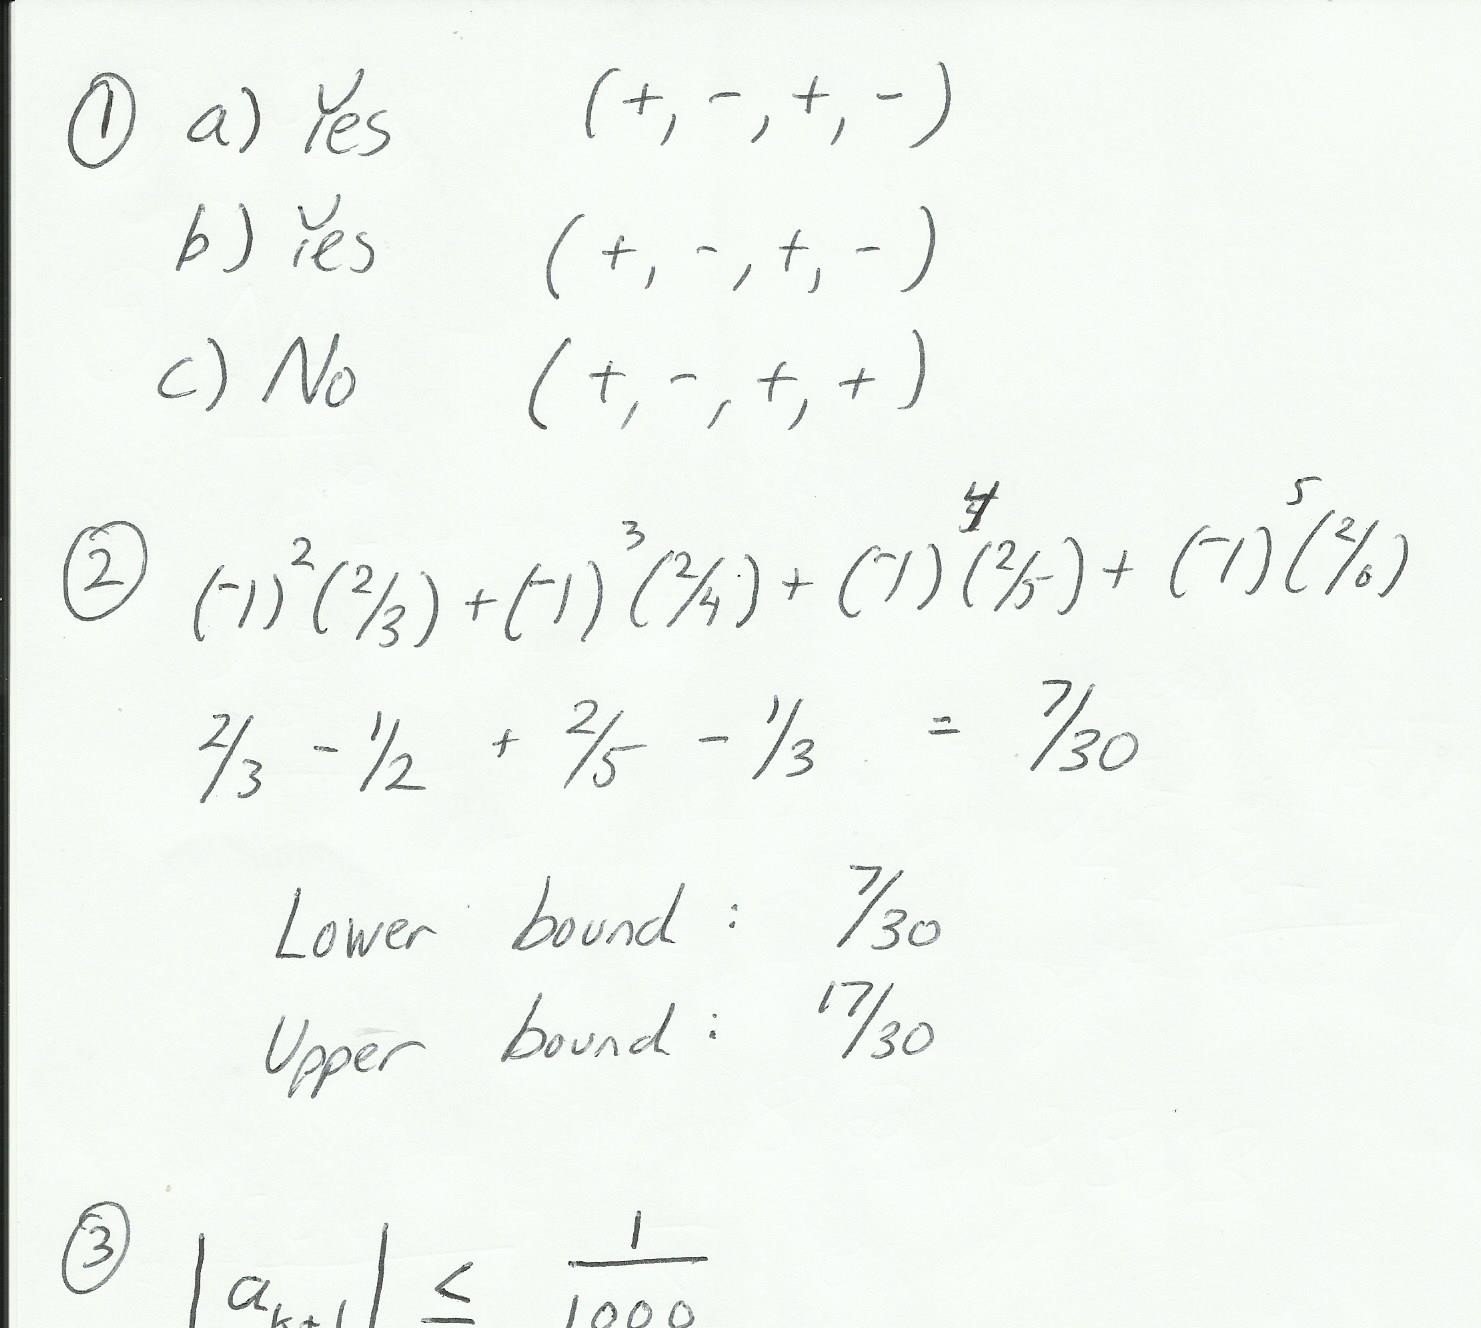 ① a) Yes (+, -, +, -)
b) Yes (+, -, +, -)
c) No (+, -, +, +)
② (-1)²(2/3) + (-1)³(2/4) + (-1)⁴(2/5) + (-1)⁵(2/6)
2/3 - 1/2 + 2/5 - 1/3 = 7/30
Lower bound: 7/30
Upper bound: 17/30
③ |aₖ₊₁| ≤ 1/1000